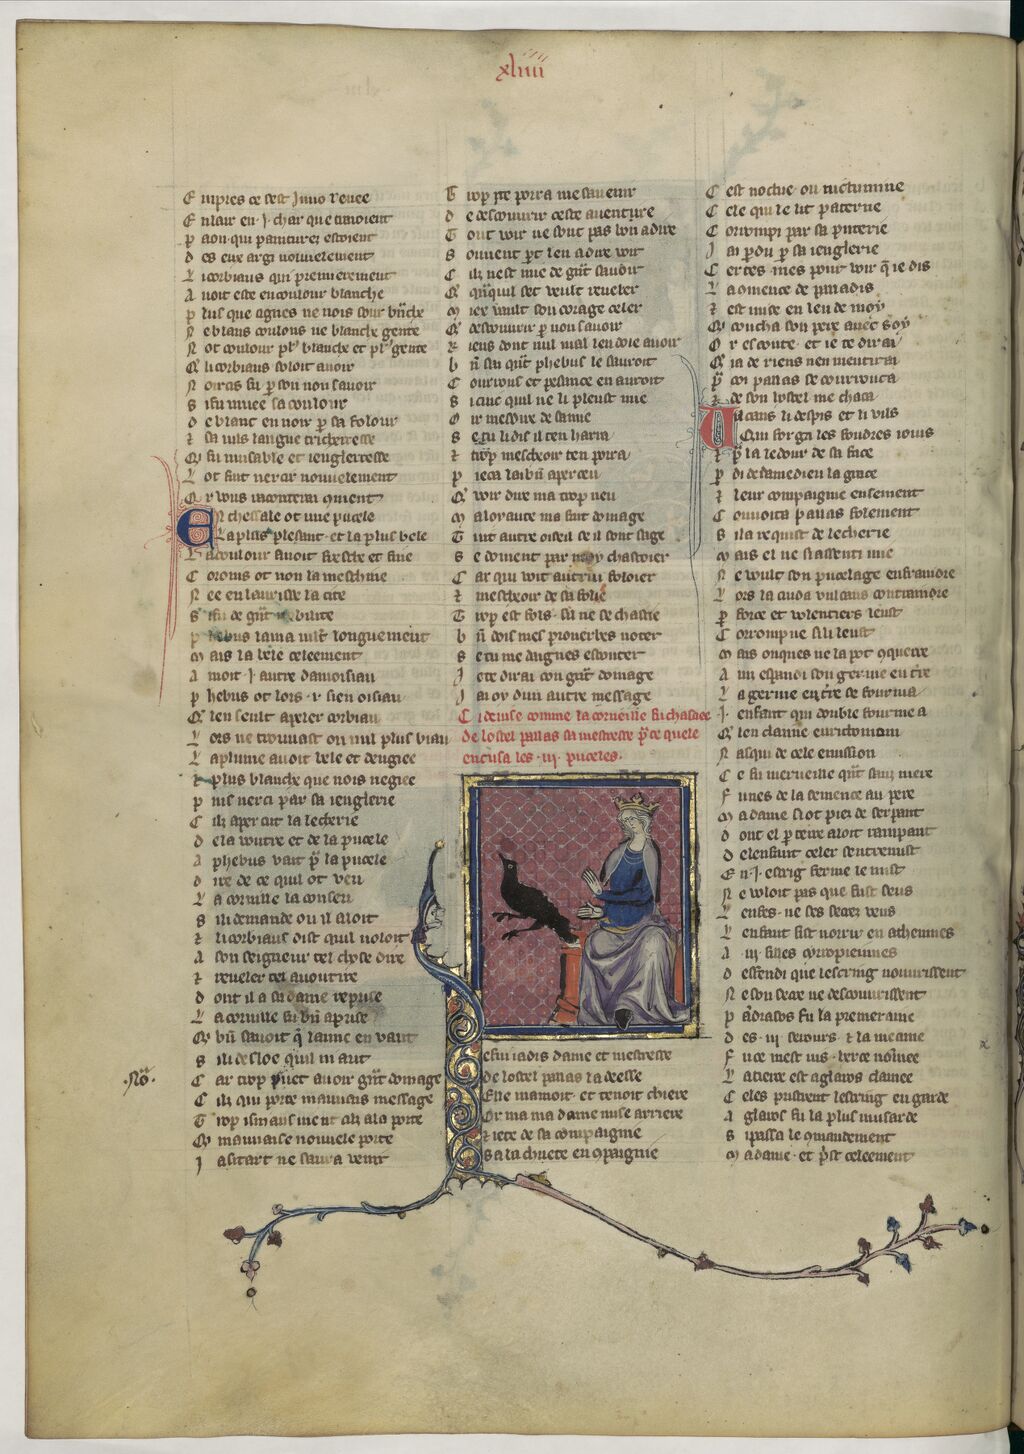 xliiii
E nupres ce sest Juno levee
E n lair en .i. char que tiroient
p aon qui painturez estoient
D es eux argi novielement
L i corbiaus qui premierement
A voit este en coulour blanche
p lus que
N e blans coulons ne blanche gente
N ot coulour pl' blanche et pl' gente
Q li corbiaus soloit avoir
N oircis fu p son non savoir
S i fu muee sa coulour
D e blanc en noir p sa folour
⁊ sa vils langue tricherresse
Q fu nuisable et jenglerresse
L ot fait nercir novielement
O r vous raconterai coment
E n thessale ot une pucele
La plus plesant et la plus bele
L a coulour avoit fresche et fine
C oronis ot non la meschine
N ee en laurisse la cite
S i fu de grant
p hebus lama mlt longuement
M ais la bele celeement
A moit .i. autre damoisiau
p hebus ot lors .i. sien oisiau
Q len seult apeler corbiau
L ors ne trouvast on nul plus biau
L a plume avoit bele et deugiee
⁊ plus blanche que nois negiee
p uis nerci par sa jenglerie
C ilz apercut la lecherie
D el avoutre et de la pucele
A phebus vait p la pucele
D ire de ce quil ot veu
L a cornille la conseu
S i li demande ou il aloit
⁊ li corbiaus dist quil voloit
A son seigneur tel chose dire
⁊ reveler tel avoutire
D ont il a sa dame reprise
L a cornille fu bn aprise
Q bn savoit q laune en vaut
S i li desloe quil ni aut
.No.
C ar trop puet avoir grnt domage
C ilz qui porte mauvais message
T rop
Q mauvaise nouvele porte
J a si tart ne saura venir
T rop
D e descouvrir ceste aventure
T out voir ne sont pas bon a dire
S ouvent pert len a dire voir
C ilz nest mie de grnt savoir
Q
M iex vault son corage celer
Q descouvrir p non savoir
⁊ iens dont nul mal len doie avoir
B n sai qnt phebus le sauroit
C ourrous et pesance en auroit
S i cuic quil ne li pleust mie
O ir mesdire de samie
S e tu li dis il ten harra
⁊ trop mescheoir ten porra
p ieca lai bn aperceu
Q voir dire ma trop neu
M a loyaute ma fait domage
T uit autre oisel se il sont sage
S e doivent par moy chastoier
C ar qui voit autrui foloier
⁊ mescheoir de sa folie
T rop est fols sil ne se chastie
B n dois mes proverbes noter
S e tu me daignes escouter
J e te dirai con grnt domage
J ai oy dun autre message
C i devise comme la corneille fu chaciee
de lostel pallas sa mestresse p ce quele
encusa les .iii. puceles.
e fui jadis dame et mestresse
De lostel pallas la deesse
Elle mamoit et tenoit chiere
Or ma ma dame mise arriere
⁊ jete de sa compaignie
S a la chuete en compaignie
C est noctue ou nictimine
C ele qui le lit paterne
C orrompi par sa puterie
J ai perdu p sa jenglerie
C ertes mes pour voir q je dis
L a
⁊ est mise en leu de moy
Q coucha son pere avec soy
O r escoute et je te dirai
Q ja de riens nen mentirai
p coi pallas se courrouca
⁊ de son hostel me chaca
Vulcans li despis et li vils
Qui forga les foudres jovis
⁊ p la ledour de sa face
p di de damedieu la grace
⁊ leur compaignie ensement
C ouvoita pallas folement
S i la requist de lecherie
M ais el ne si assenti mie
N e voult son pucelage enfraindre
L ors la cuida vulcans contraindre
p force et volentiers leust
C orrompue si li leust
M ais onques ne la pot conquerre
A ins espandi son germe en terre
L a germe en terre se fourma
.I. enfant qui double fourme a
Q len claime eurictonium
N asqui de cele emission
C e fu merveille qnt sanz mere
F u nes de la semence au pere
M a dame si ot piez de serpant
D ont el p terre aloit rampant
D el enfant celer sentremist
E n .i. escrig ferme le mist
N e voloit pas que fust seus
L enfes ne ses secrez veus
L enfant fist norrir en athennes
A .iii. filles
D effendi que lescring nouvrissent
N e son secre ne descouvrissent
p
D es .iii. serours ⁊ la meaine
F u ce mest vis herce nomee
L a tierce est aglaros clamee
C eles pristrent lescring en garde
A glaros fu la plus musarde
S i passa le comandement
M a dame et